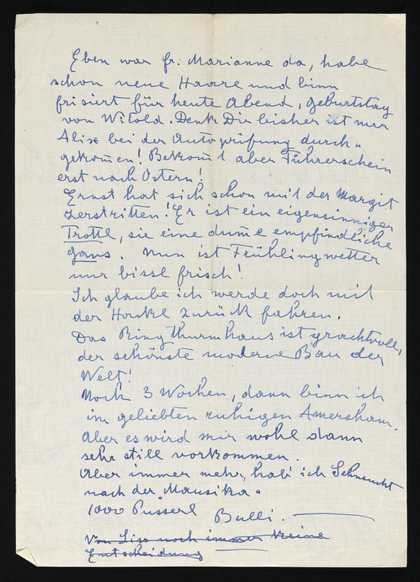 Eben war fr. Marianne da, habe
schon neue Haare und binn
frisiert für heute Abend, Geburtstag
von Witold. Denk Dir bisher ist nur
Alix bei der Autoprüfung durch-
gekom̄en! Bekom̄t aber Führerschein
erst nach Ostern!
Ernst hat sich schon mit der Margit
zerstritten! Er ist ein eigensinniger
Trottl, sie eine dum̄e empfindliche
Gans. Nun ist Frühlingswetter
nur bissl frisch!
Ich glaube ich werde doch mit
der Horkl zurück fahren.
Das Ringthurmhaus ist prachtvoll,
der schönste moderne Bau der
Welt!
Noch 3 Wochen, dann binn ich
im geliebten ruhigen Amersham.
Aber es wird mir wohl dann
sehr still vorkommen.
Aber immer mehr, hab ich Sehnsucht
nach der "Mausika"
1000 Pusserl Bulli.
Von noch immer keine
Entscheidung